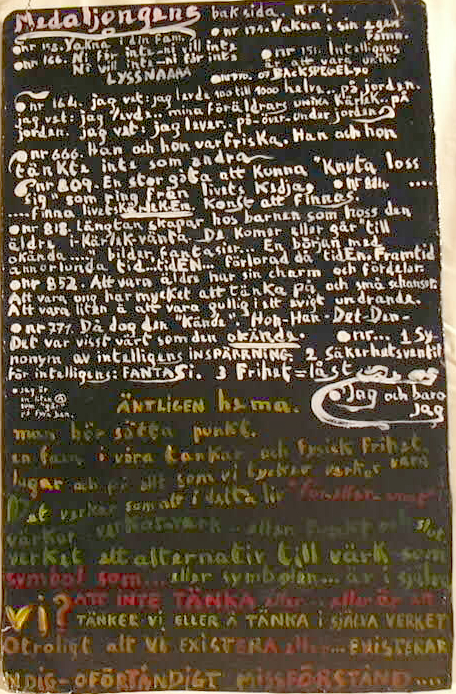 Medaljongens baksida. nr 1.
nr 158. Vakna i din famn. nr 171. Vakna i sin egen famn.
nr 166. Ni får inte-ni vill inte
Ni vill inte-ni får inte
LYSSNA
nr 151. Intelligens är att vara unik.
BACKSPEGEL
nr 164. jag vet: jag levde 100 till 1000 halva.. på jorden.
jag vet: jag levde.. mina föräldrars unika kärlek.. på
jorden. jag vet: jag lever. på-över-under jorden
nr 666. Han och hon var friska. Han och hon
tänkte inte som andra
nr 809. En stor göta att kunna "Knyta loss
sig" som ring från livets kedja nr 814. ....
.... finna livets KÄRLEKEN Konst att finnas.
nr 818. Längtan skapar hos barnen som hoss den
äldre i-kärlek-vänta. De komer eller går "till
okända ....; bilder, fantasier... En början med
annorlunda tid...tidEN... förlorad då tidEn. Framtid
nr 852. Att vara äldre har sin charm och fördelar
Att vara ung har mycket att tänka på och små schanser
Att vara liten ä att vara gullig i ett evigt undrande.
nr 771. Då dog den "Kände". Hon-Han-Det-Den-
Det var visst värt som den okände. nr... 1 Sy-
nonym av intelligens INSPÄRRNING. 2 Säkerhetsventil
för intelligens: FANTASi. 3 Frihet = låst
Jag är
en liten
Jag och bara
jag
ÄNTLIGEN hema.
man bör sätta punkt.
en fain i våra tankar och fysisk Frihet.
lugar och på allt som vi tycker verkar vara
Det verkar som att i detta liv
verkar verkar-verk.. eller punkt och slut
verket ett alternativ till värk som
symbol som... eller symbolen... är i själva
Vi? att INTE TÄNKA eller - eller är att
TÄNKER VI ELLER Ä TÄNKA I SJÄLVA VERKET
Otroligt att Vi EXISTERA eller... EXISTERAR
NDIG-OFÖRTÅNDIGT MISSFÖRSTÅND ....